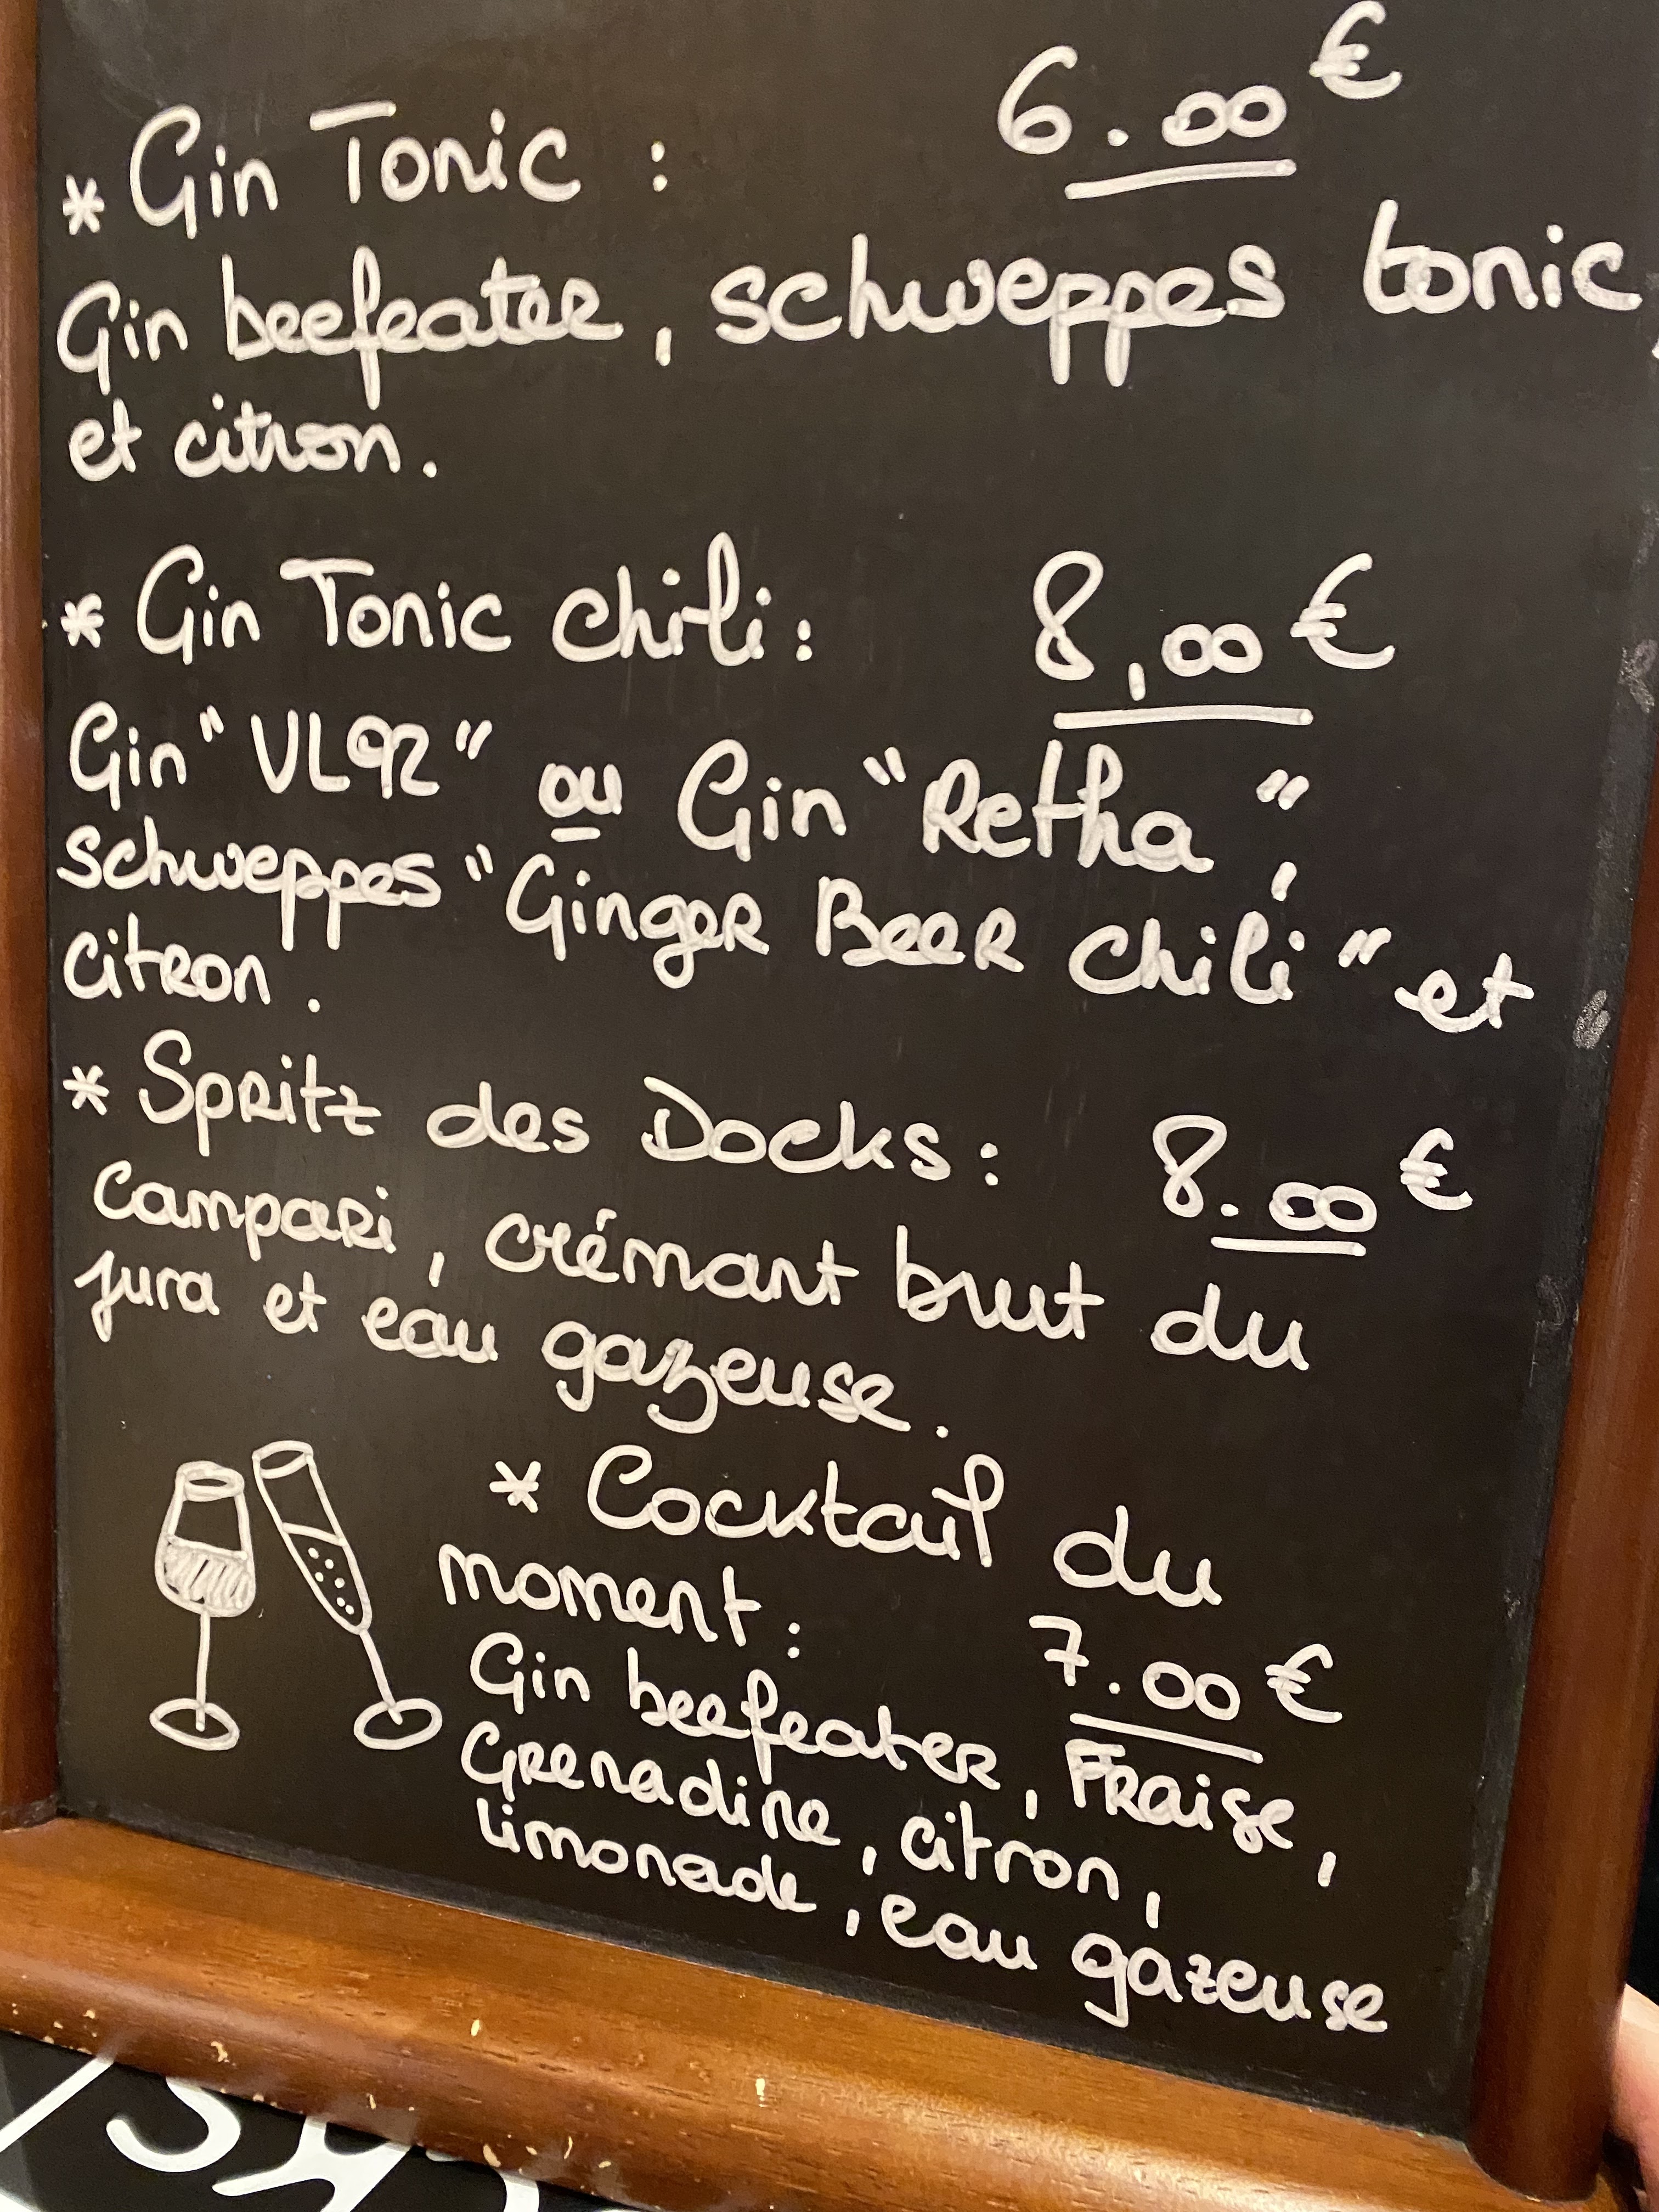 * Gin Tonic : 6.00 €
Gin beefeater, schweppes tonic,
et citron.
* Gin Tonic chili : 8,00 €
Gin "VL92" ou Gin "Retha",
schweppes "Ginger Beer chili" et
citron.
* Spritz des Docks : 8.00 €
Campari, crémant brut du
jura et eau gazeuse.
* Cocktail du
moment : 7.00 €
Gin beefeater, Fraise,
Grenadine, citron,
limonade, eau gazeuse